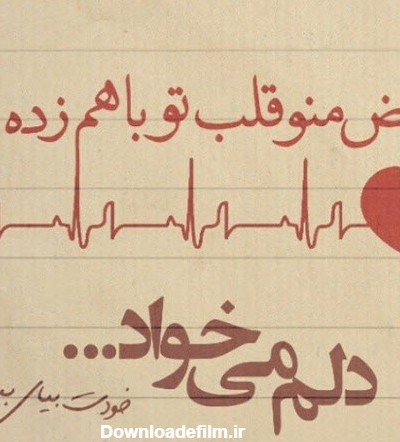 ض منو قلب تو با هم زده
دلم می‌خواد...
خودت بیای
Downloadefilm.ir